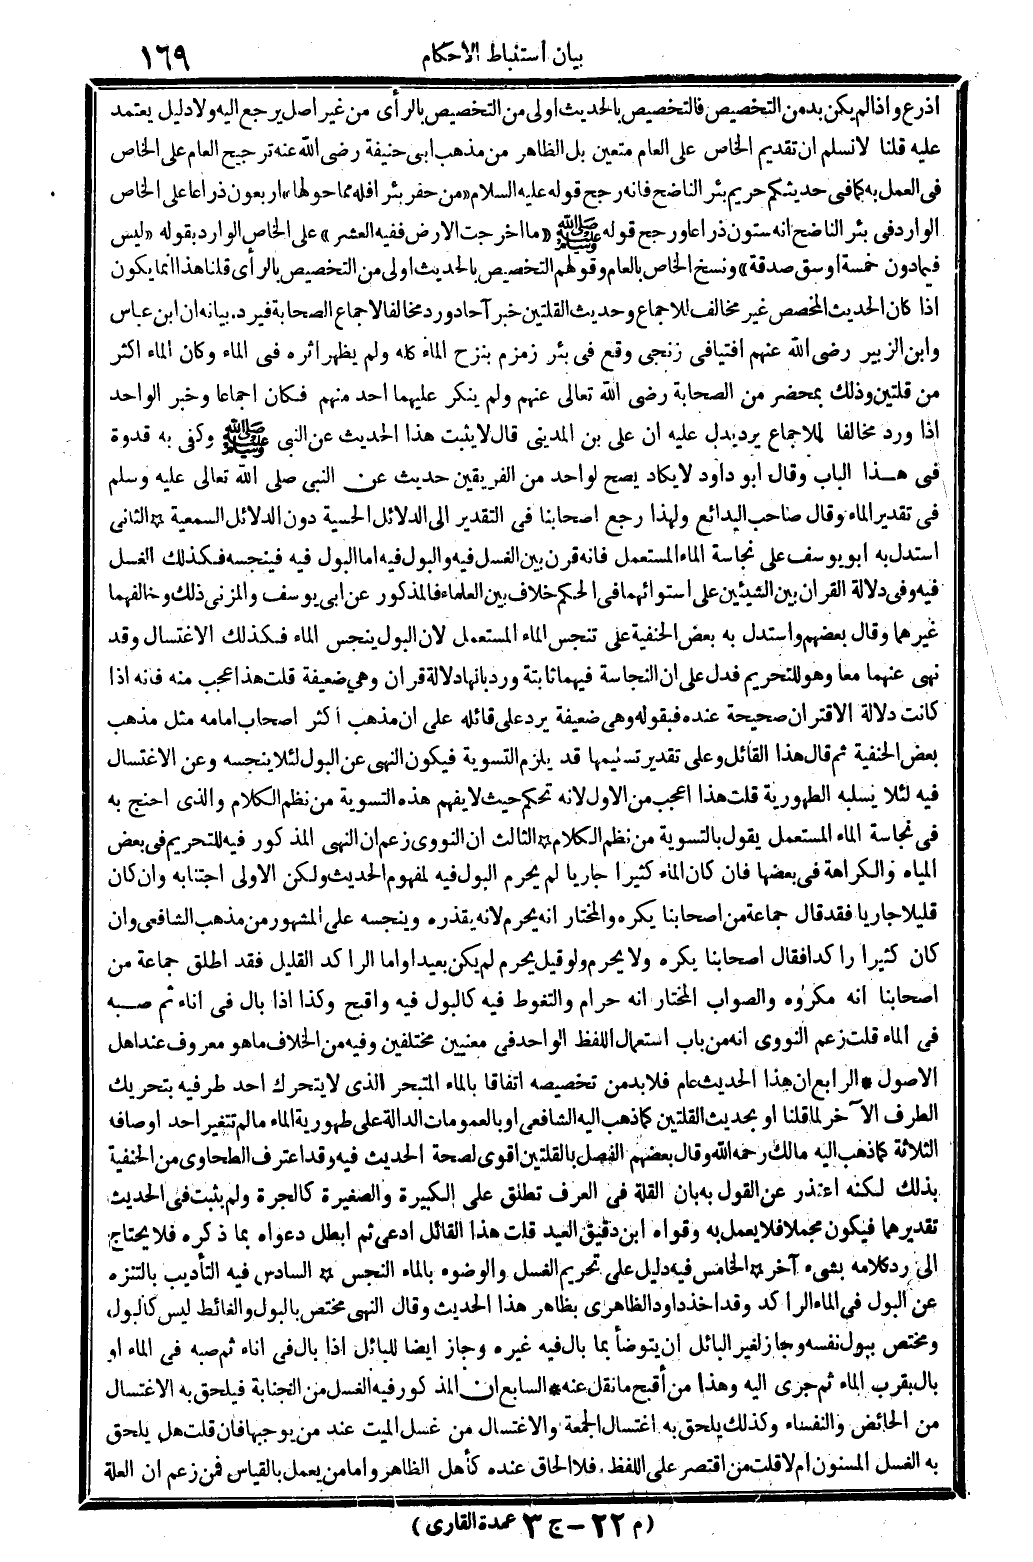 بيان أستنباط الاحكام
١٦٩
اذرع واذالم يكن بدمن التخصيص فالتخصيص بالحديث اولى من التخصيص بالرأى من غير اصل يرجع اليه ولادليل يعتمد
عليه قلنا لانسلم ان تقديم الخاص على العام متعين بل الظاهر من مذهب ابى حنيفة رضى الله عنه ترجيح العام على الخاص
فى العمل به كمافى حديثكم حريم بئر الناضح فانه رجح قوله عليه السلام «من حفر بئر افله مما حولها» اربعون ذراعا على الخاص
الوارد فى بئر الناضح انه ستون ذراعا ورجح قوله ﷺ «ما اخرجت الارض ففيه العشر» على الخاص الوارد بقوله «ليس
فيمادون خمسة اوسق صدقة» ونسخ الخاص بالعام وقولهم التخصيص بالحديث اولى من التخصيص بالرأى قلنا هذا انمايكون
اذا كان الحديث المخصص غير مخالف للاجماع وحديث القلتين خبر آحاد ورد مخالفا لاجماع الصحابة فيرد. بيانه ان ابن عباس
وابن الزبير رضى الله عنهم افتيافى زنجى وقع فى بئر زمزم بنزح الماء كله ولم يظهر اثره فى الماء وكان الماء اكثر
من قلتين وذلك بمحضر من الصحابة رضى الله تعالى عنهم ولم ينكر عليهما احد منهم فكان اجماعا وخبر الواحد
اذا ورد مخالفا للاجماع يرد يدل عليه ان على بن المدينى قال لايثبت هذا الحديث عن النبى ﷺ وكفى به قدوة
فى هذا الباب وقال ابو داود لايكاد يصح لواحد من الفريقين حديث عن النبى صلى الله تعالى عليه وسلم
فى تقدير الماء وقال صاحب البدائع ولهذا رجع اصحابنا فى التقدير الى الدلائل الحسية دون الدلائل السمعية ☆ الثانى
استدل به ابو يوسف على نجاسة الماء المستعمل فانه قرن بين الغسل فيه والبول فيه اما البول فيه فينجسه فكذلك الغسل
فيه وفى دلالة القران بين الشيئين على استوائهما فى الحكم خلاف بين العلماء فالمذكور عن ابى يوسف والمزنى ذلك وخالفهما
غيرهما وقال بعضهم واستدل به بعض الحنفية على تنجس الماء المستعمل لان البول ينجس الماء فكذلك الاغتسال وقد
نهى عنهما معا وهو للتحريم فدل على ان النجاسة فيهما ثابتة ورد بانها دلالة قران وهى ضعيفة قلت هذا عجب منه فانه اذا
كانت دلالة الاقتران صحيحة عنده فبقوله وهى ضعيفة يرد على قائله على ان مذهب اكثر اصحاب امامه مثل مذهب
بعض الحنفية ثم قال هذا القائل وعلى تقدير تسليمها قد يلزم التسوية فيكون النهى عن البول لئلا ينجسه وعن الاغتسال
فيه لئلا يسلبه الطهورية قلت هذا اعجب من الاول لانه تحكم حيث لا يفهم هذه التسوية من نظم الكلام والذى احتج به
فى نجاسة الماء المستعمل يقول بالتسوية من نظم الكلام ☆ الثالث ان النووى زعم ان النهى المذكور فيه للتحريم فى بعض
المياه والكراهة فى بعضها فان كان الماء كثيرا جاريا لم يحرم البول فيه لمفهوم الحديث ولكن الاولى اجتنابه وان كان
قليلا جاريا فقد قال جماعة من اصحابنا يكره والمختار انه يحرم لانه يقذره وينجسه على المشهور من مذهب الشافعى وان
كان كثيرا راكدا فقال اصحابنا يكره ولا يحرم ولو قيل يحرم لم يكن بعيدا واما الراكد القليل فقد اطلق جماعة من
اصحابنا انه مكروه والصواب المختار انه حرام والتغوط فيه كالبول فيه واقبح وكذا اذا بال فى اناء ثم صبه
فى الماء قلت زعم النووى انه من باب استعمال اللفظ الواحد فى معنيين مختلفين وفيه من الخلاف ماهو معروف عند اهل
الاصول ✶ الرابع ان هذا الحديث عام فلا بد من تخصيصه اتفاقا بالماء المتبحر الذى لا يتحرك احد طرفيه بتحريك
الطرف الآخر لما قلنا او بحديث القلتين كما ذهب اليه الشافعى او بالعمومات الدالة على طهورية الماء مالم تتغير احد اوصافه
الثلاثة كما ذهب اليه مالك رحمه الله وقال بعضهم الفصل بالقلتين اقوى لصحة الحديث فيه وقد اعترف الطحاوى من الحنفية
بذلك لكنه اعتذر عن القول به بان القلة فى العرف تطلق على الكبيرة والصغيرة كالجرة ولم يثبت فى الحديث
تقديرهما فيكون مجملا فلا يعمل به وقواه ابن دقيق العيد قلت هذا القائل ادعى ثم ابطل دعواه بما ذكره فلا يحتاج
الى رد كلامه بشىء آخر ☆ الخامس فيه دليل على تحريم الغسل والوضوء بالماء النجس ☆ السادس فيه التأديب بالتنزه
عن البول فى الماء الراكد وقد اخذ داود الظاهرى بظاهر هذا الحديث وقال النهى مختص بالبول والغائط ليس كالبول
ومختص ببول نفسه وجاز لغير البائل ان يتوضأ بما بال فيه غيره وجاز ايضا للبائل اذا بال فى اناء ثم صبه فى الماء او
بال بقرب الماء ثم جرى اليه وهذا من أقبح مانقل عنه ✶ السابع ان المذكور فيه الغسل من الجنابة فيلحق به الاغتسال
من الحائض والنفساء وكذلك يلحق به اغتسال الجمعة والاغتسال من غسل الميت عند من يوجبها فان قلت هل يلحق
به الغسل المسنون ام لا قلت من اقتصر على اللفظ، فلا الحاق عنده كأهل الظاهر واما من يعمل بالقياس فمن زعم ان العلة
(م ٢٢ – ج ٣ عمدة القارى)